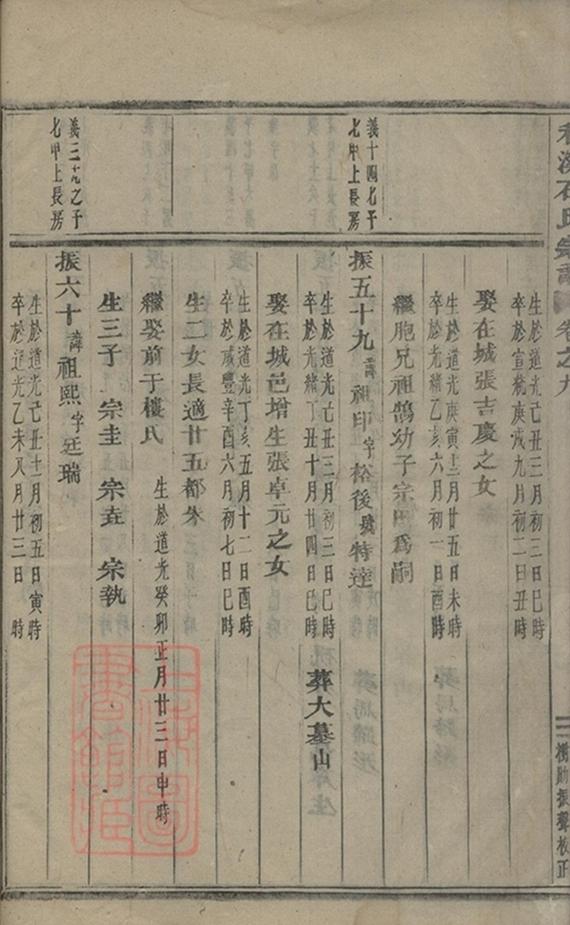 石氏宗譜 卷之九
衡助振聲校正
生於道光己丑三月初三日巳時
卒於宣統庚戌九月初二日丑時
娶在城張吉慶之女
生於道光庚寅十二月廿五日未時
卒於光緒乙亥六月初一日酉時
繼胞兄祖鵠幼子宗田為嗣
義十四七子
七甲上長房
振五十九 諱祖印字裕後號特達
生於道光己丑三月初三日巳時
卒於光緒丁丑十月廿四日巳時 葬大墓山
娶在城邑增生張卓元之女
生於道光丁亥五月十二日酉時
卒於咸豐辛酉六月初七日巳時
生二女長適廿五都朱
繼娶前于樓氏 生於道光癸卯正月廿三日申時
生三子 宗圭 宗壵 宗執
義三九之子
七甲上長房
振六十 諱祖熙字廷瑞
生於道光己丑十一月初五日寅時
卒於道光乙未八月廿三日 時
上海圖書館藏